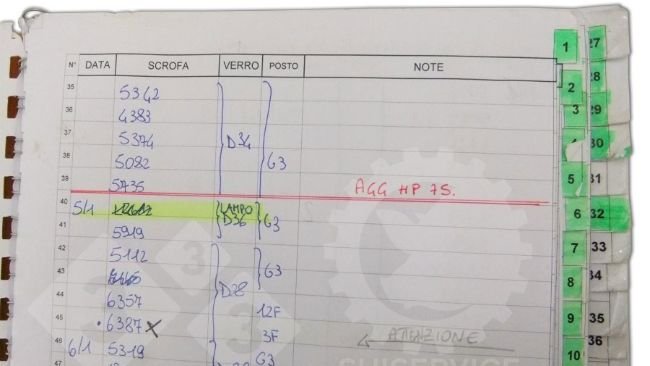 N° DATA SCROFA VERRO POSTO NOTE
35 5342
36 4383
37 5374 D34
38 5082 G3
39 5735 AGG HP 75.
40 5/1 LAMPO
41 5919 D36 G3
42 5112
43 G3
44 6357 D28
45 6387 x 12F
46 6/1 5319 3F ATTENZIONE
G3
SUISERVICE
333
1
2
3
5
6
7
8
9
10
27
28
29
30
31
32
33
34
35
36